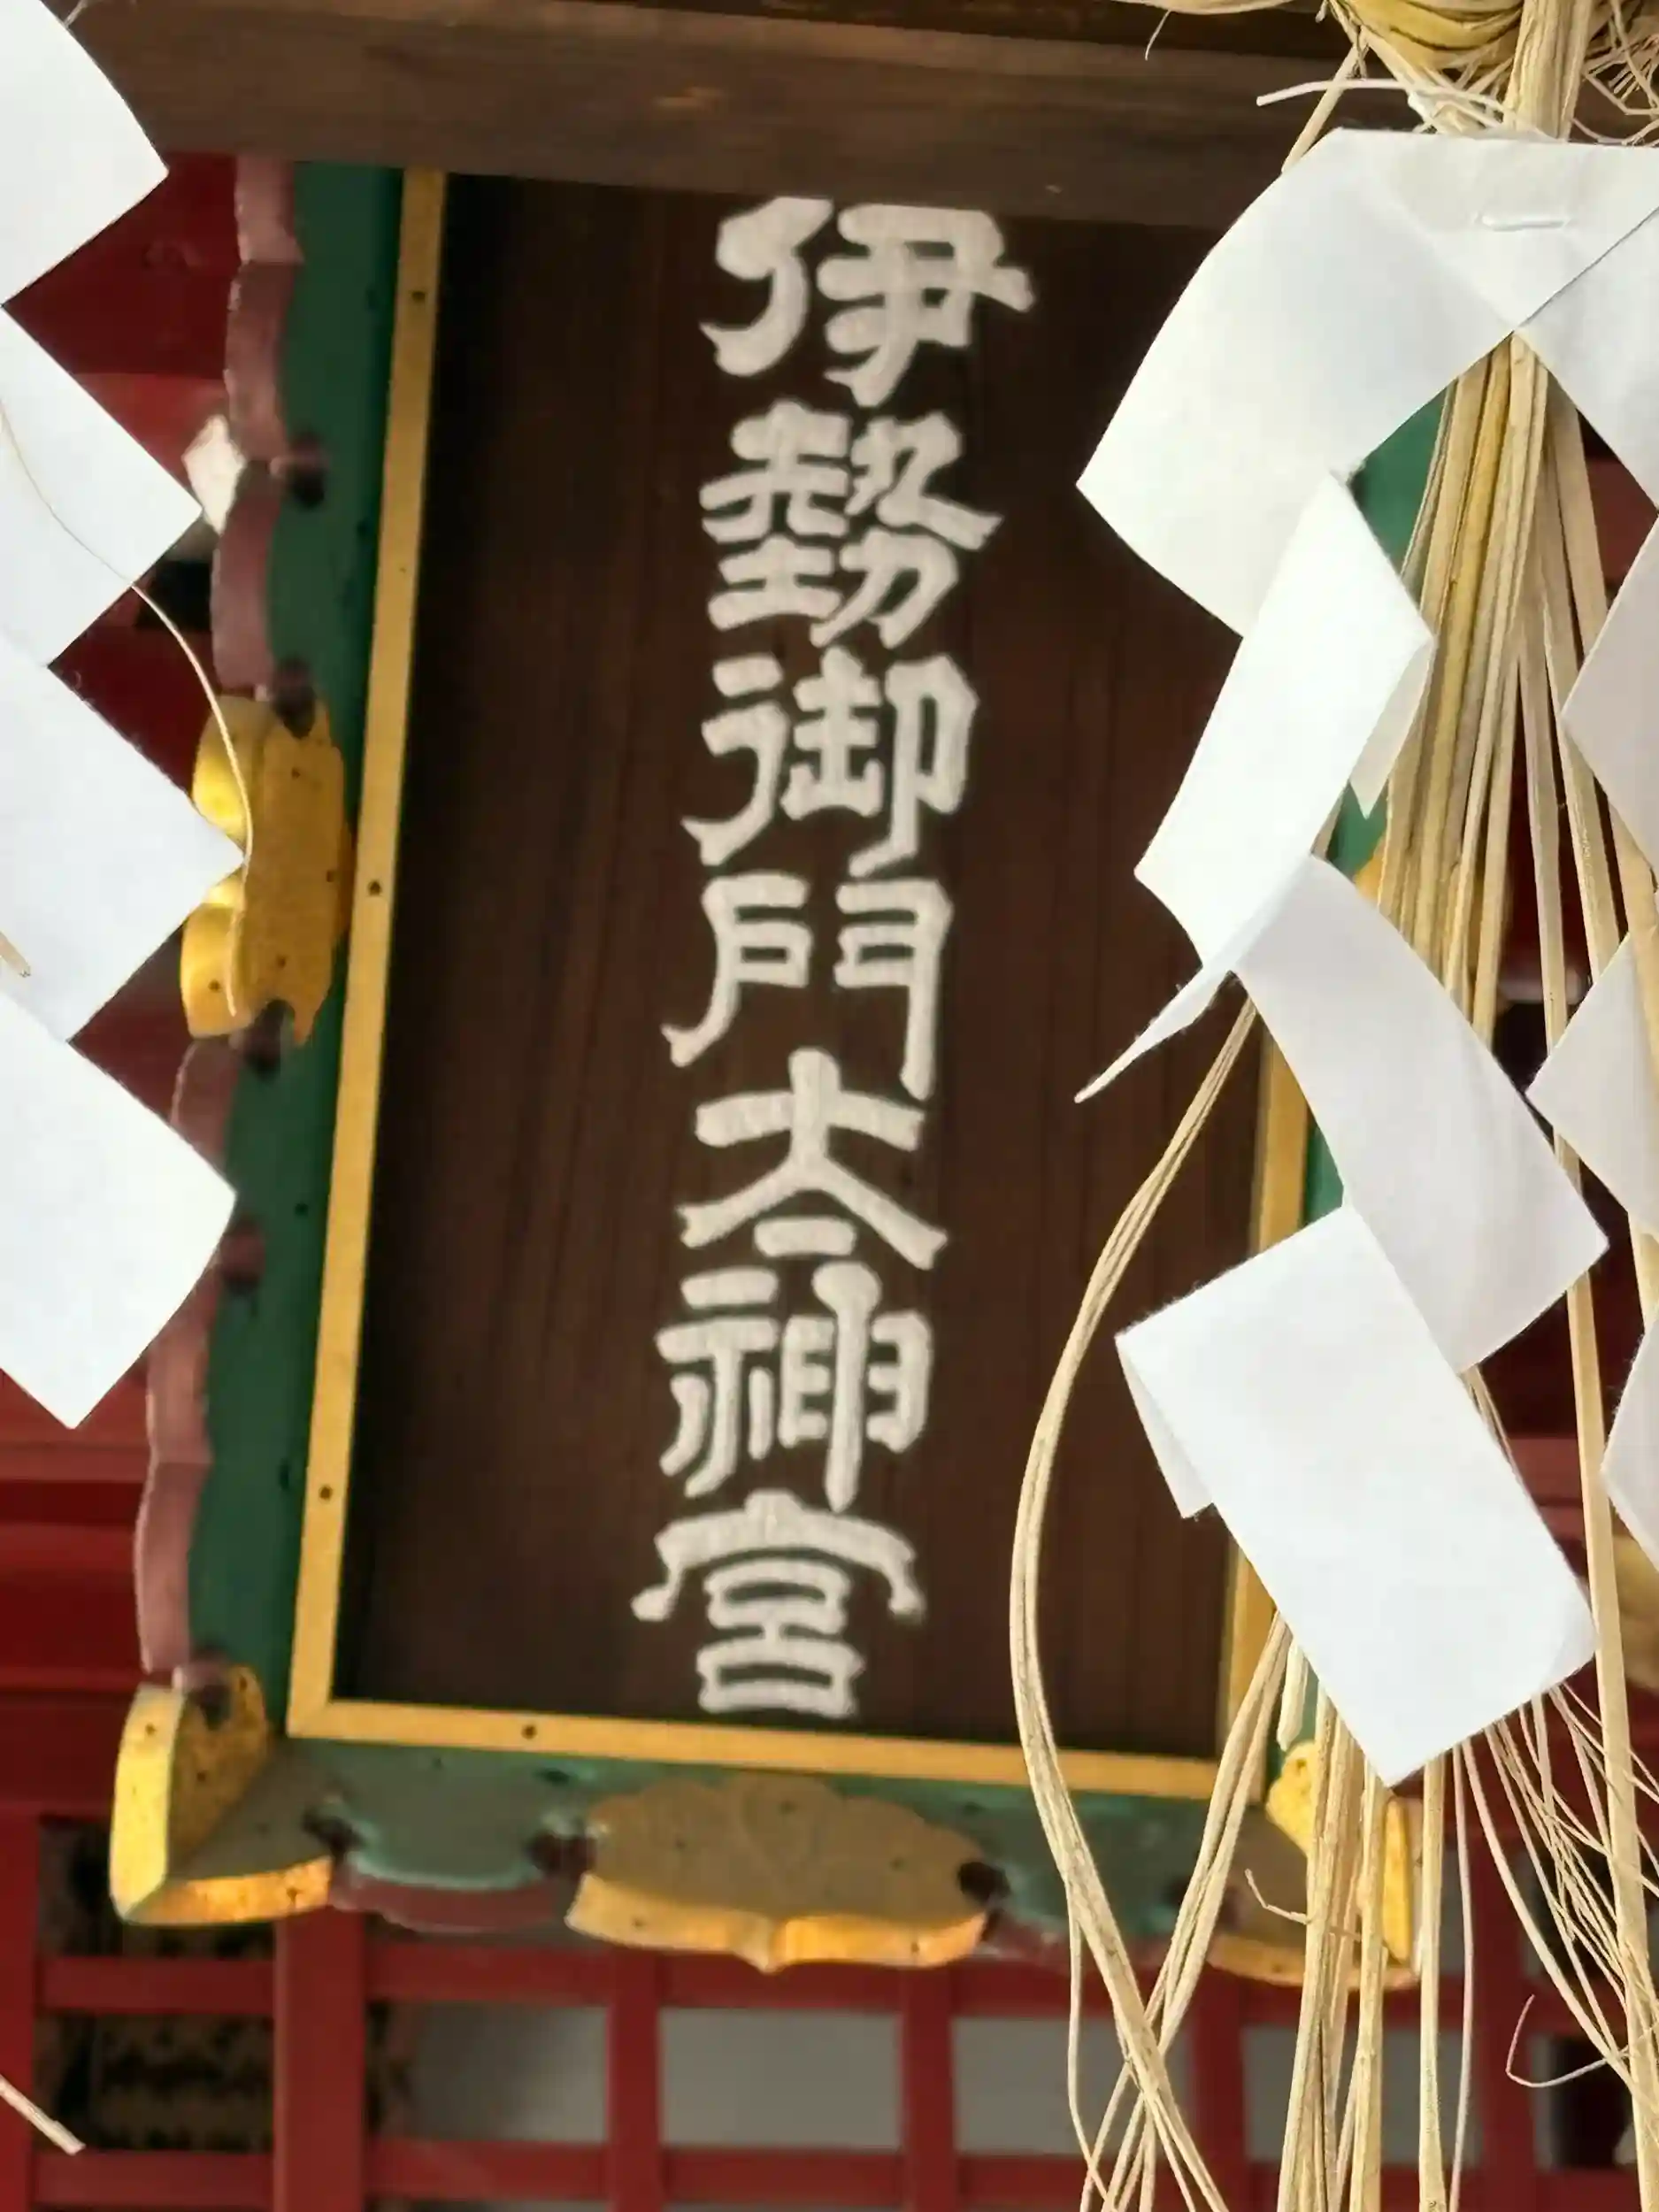 伊勢御門大神宮